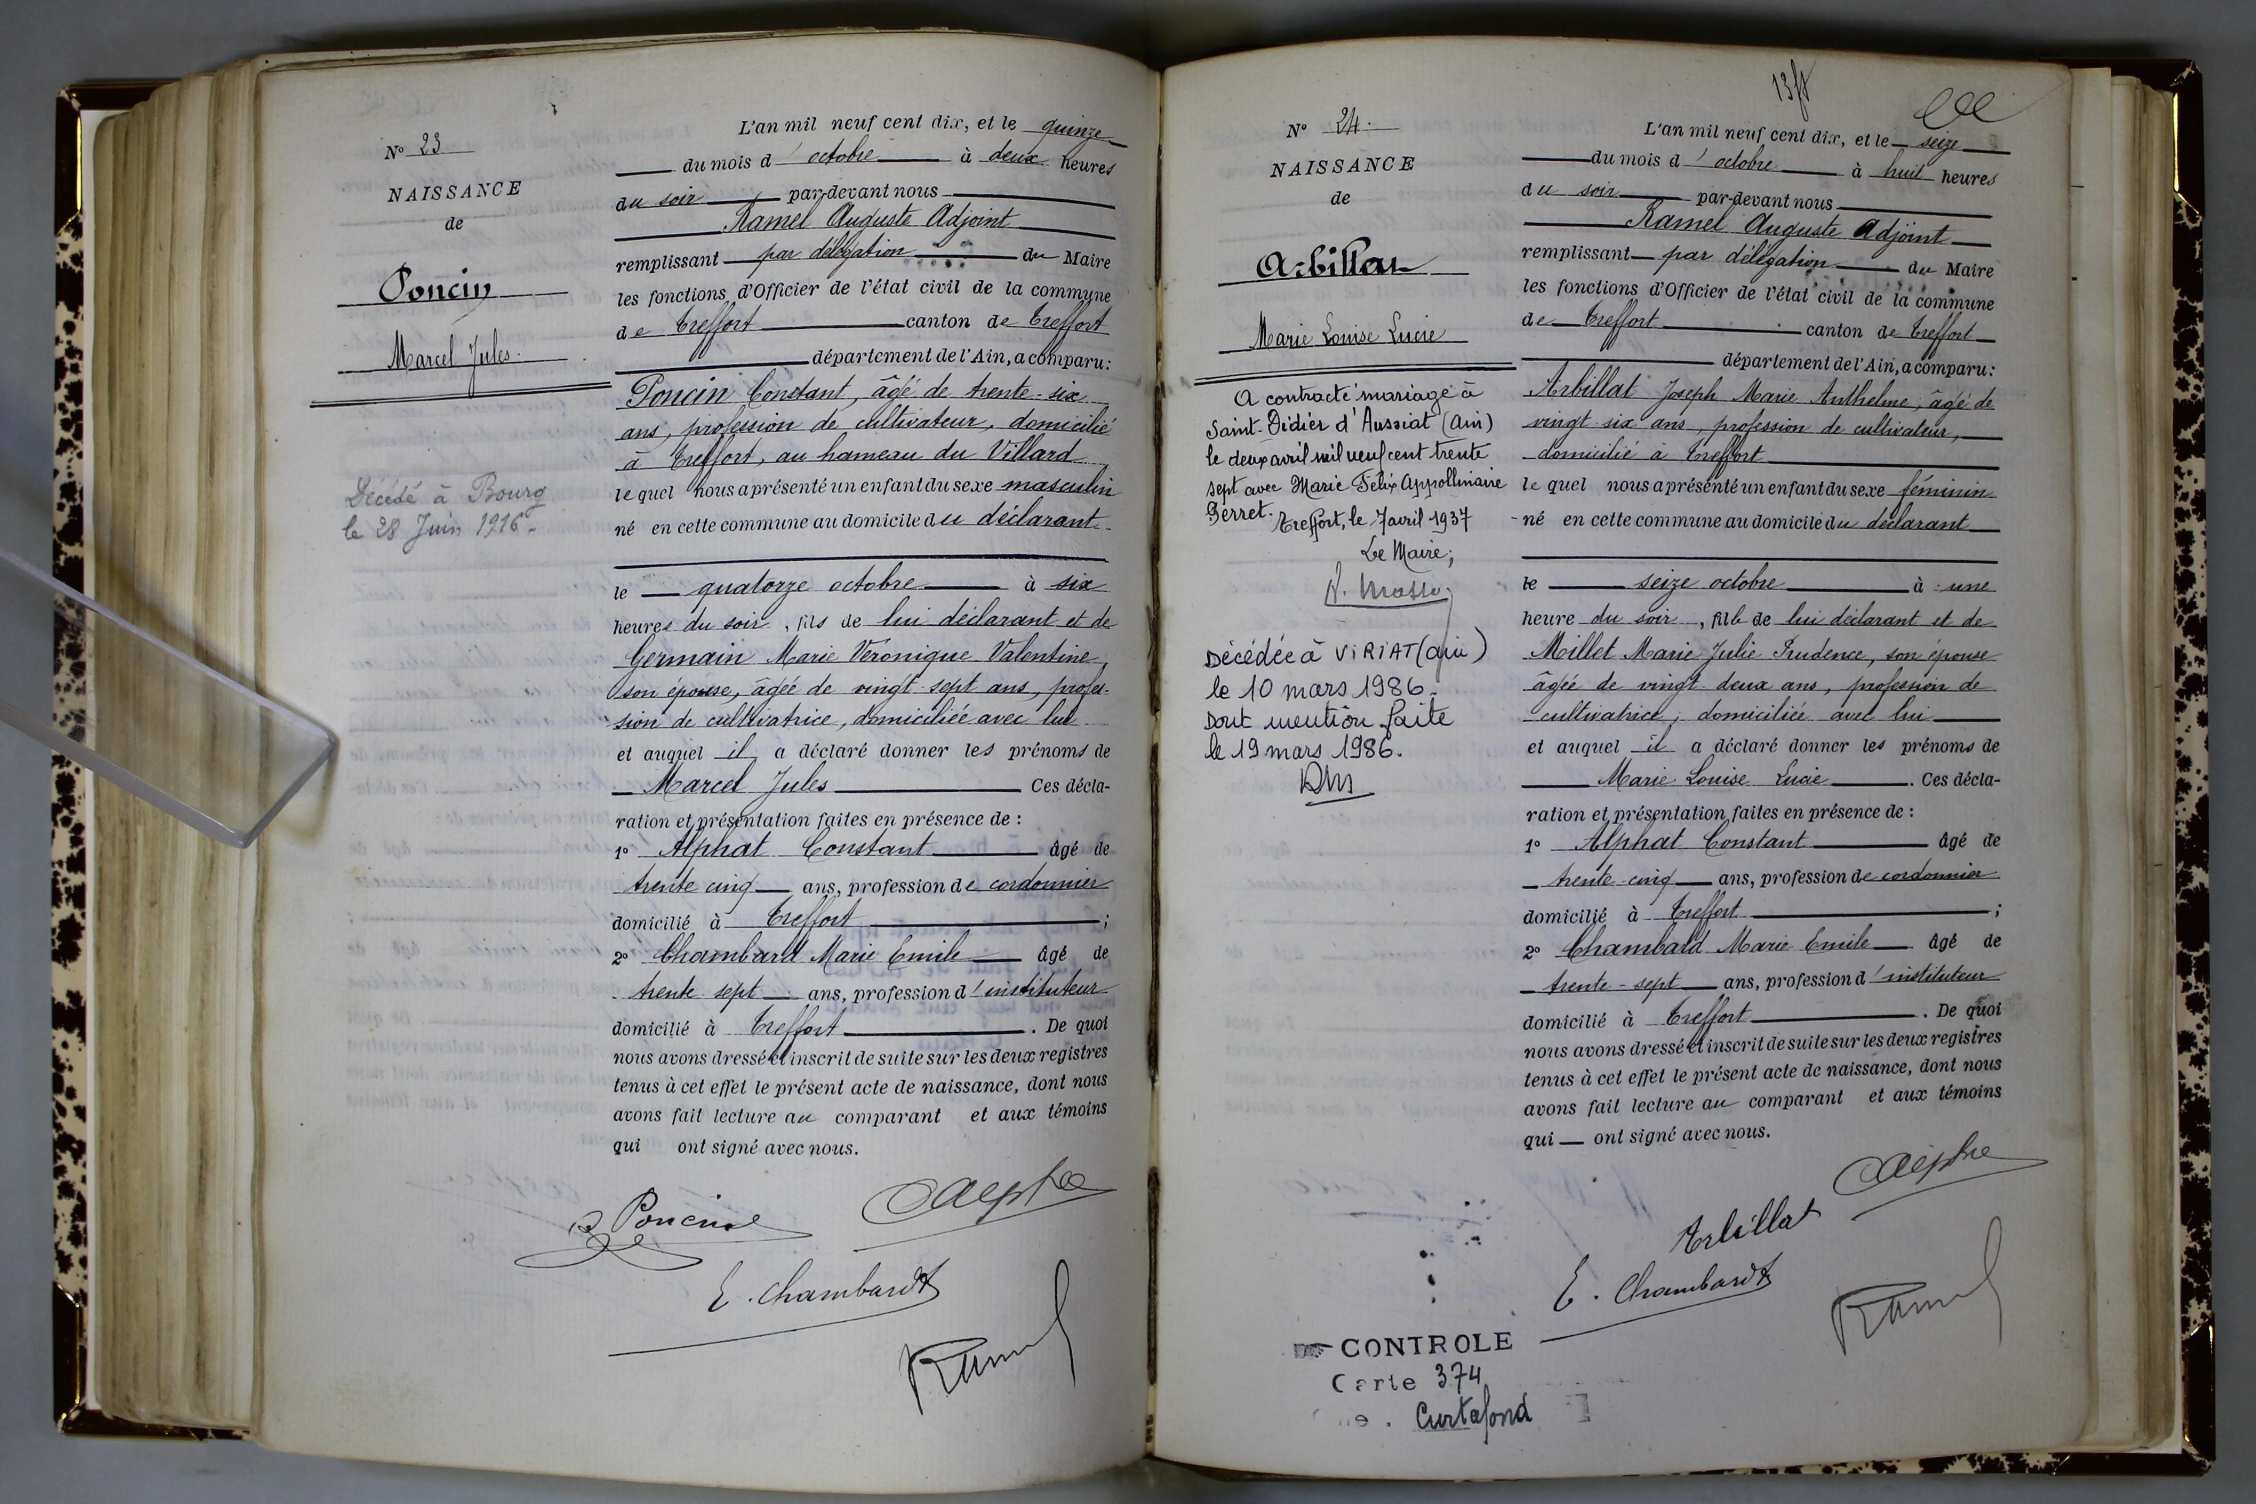 N° 23
NAISSANCE
de
Poncin
Marcel Jules
Décédé à Bourg
le 28 Juin 1916.
L'an mil neuf cent dix, et le quinze
du mois d'octobre à deux heures
du soir par-devant nous
Ramel Auguste Adjoint
remplissant par délégation du Maire
les fonctions d'Officier de l'état civil de la commune
de Treffort canton de Treffort
département de l'Ain, a comparu:
Poncin Constant, âgé de trente-six
ans, profession de cultivateur, domicilié
à Treffort, au hameau du Villard
lequel nous a présenté un enfant du sexe masculin
né en cette commune au domicile du déclarant
le quatorze octobre à six
heures du soir, fils de lui déclarant et de
Germain Marie Véronique Valentine,
son épouse, âgée de vingt-sept ans, profes-
sion de cultivatrice, domiciliée avec lui
et auquel il a déclaré donner les prénoms de
Marcel Jules Ces décla-
ration et présentation faites en présence de :
1° Alphat Constant âgé de
trente cinq ans, profession de cordonnier
domicilié à Treffort ;
2° Chambard Marie Emile âgé de
trente sept ans, profession d'instituteur
domicilié à Treffort . De quoi
nous avons dressé et inscrit de suite sur les deux registres
tenus à cet effet le présent acte de naissance, dont nous
avons fait lecture au comparant et aux témoins
qui ont signé avec nous.
Poncin
E. Chambard
Ramel
13 ft
N° 24.
NAISSANCE
de
Arbillat
Marie Louise Lucie
A contracté mariage à
Saint-Didier d'Aussiat (Ain)
le deux avril mil neuf cent trente
sept avec Marie Félix Appollinaire
Perret.
Treffort, le 7 avril 1937
Le Maire,
Décédée à VIRIAT (ain)
le 10 mars 1986.
Dont mention faite
le 19 mars 1986.
L'an mil neuf cent dix, et le seize
du mois d'octobre à huit heures
du soir par-devant nous
Ramel Auguste Adjoint
remplissant par délégation du Maire
les fonctions d'Officier de l'état civil de la commune
de Treffort canton de Treffort
département de l'Ain, a comparu:
Arbillat Joseph Marie Anthelme, âgé de
vingt six ans, profession de cultivateur,
domicilié à Treffort
lequel nous a présenté un enfant du sexe féminin
né en cette commune au domicile du déclarant
le seize octobre à une
heure du soir, fille de lui déclarant et de
Millet Marie Julie Prudence, son épouse
âgée de vingt-deux ans, profession de
cultivatrice, domiciliée avec lui
et auquel il a déclaré donner les prénoms de
Marie Louise Lucie . Ces décla-
ration et présentation faites en présence de :
1° Alphat Constant âgé de
trente-cinq ans, profession de cordonnier
domicilié à Treffort ;
2° Chambard Marie Emile âgé de
trente-sept ans, profession d'instituteur
domicilié à Treffort . De quoi
nous avons dressé et inscrit de suite sur les deux registres
tenus à cet effet le présent acte de naissance, dont nous
avons fait lecture au comparant et aux témoins
qui ont signé avec nous.
Arbillat
E. Chambard
Ramel
CONTROLE
Carte 374
Curtafond